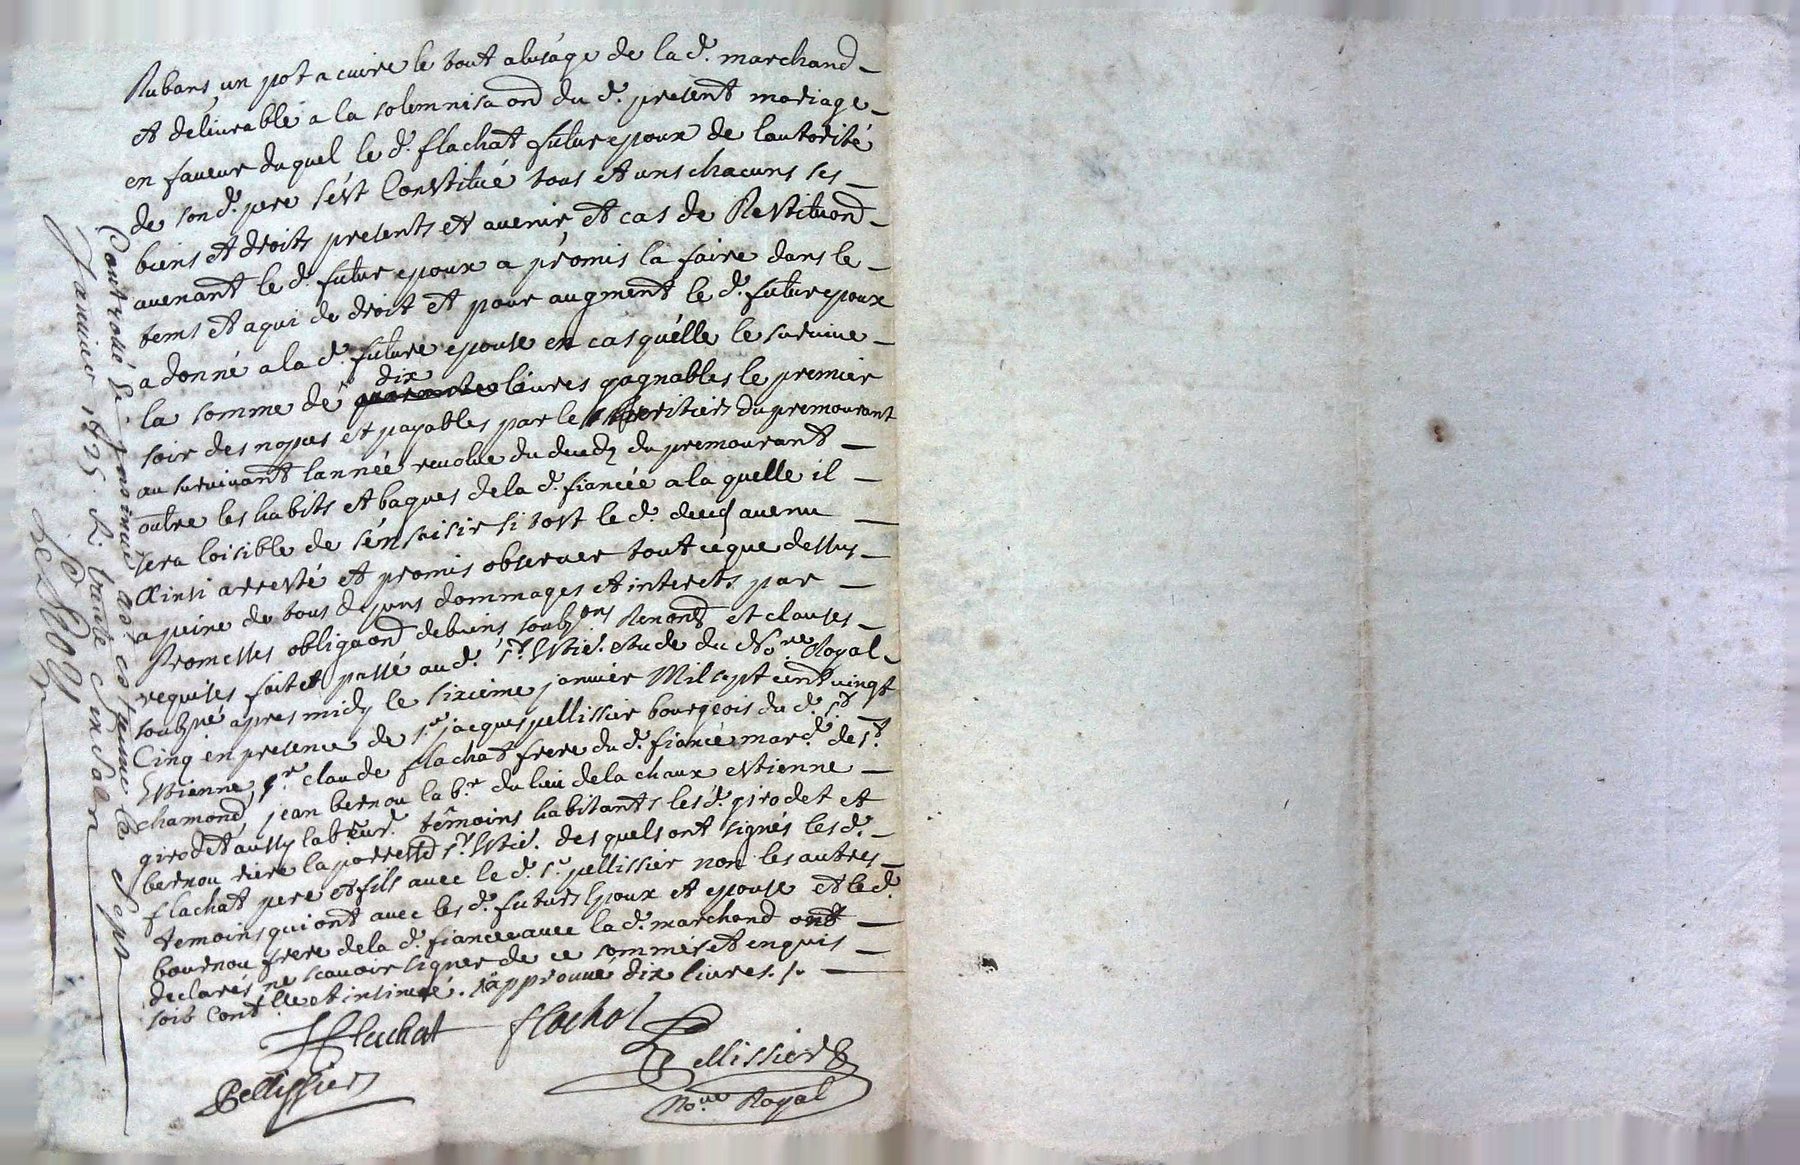 Rubans, un pot a cuire le tout alusage de la d. marchand
et deliurable a la solemnisaond du d. present mariage
en faueur duquel le d. flachat futur epoux de lautorité
de son d. pere sést Constitué tous et uns chacuns ses
biens et droits presents et auenir, et cas de Restituond
auenant le d. futur epoux a promis la faire dans le
tems et a qui de droit et pour augment le d. futur epoux
a donné a la d. future epouse en cas quélle le suruiue
la somme de dix liures gagnables le premier
soir des nopces et payables par le heritiers du premourant
au suruiuant lannée reuolue du deced du premourant
outre les habits et bagues de la d. fiancée a la quelle il
sera loisible de sén saisir si tost le d. deced auenu
Ainsi arresté et promis obseruer tout céque dessus
a peine de tous depens dommages et interets par
Promesses obligaond de biens soubzons Renond et clauses
requises fait et passé au d. St. Estie. etude du d. Nore Royal
soubzné apres midy le sixieme januier Mil sept cent vingt
Cinq en presence de sr. jacques pellissier bourgeois du d. St
Estienne, sr. claude flachat frere du d. fiancé mard. de St.
chamond, jean bernou labr. du lieu de la chaux estienne
girodet aussy labeur. témoins habitants les d. girodet et
bernou riere la parresse St. Estie. des quels ont signés les d.
flachat pere et fils auec le d. sr. pellissier non les autres
temoins qui ont auec les d. futurs Epoux et epouse et le d.
bournou frere de la d. fiancée auec la d. marchand ont
declarés ne scauoir signer de ce sommés et enquis
soit contlle et insinué. Japprouué dix liures./.
flachat flachat
Pellissier
Pellissier
Nore Royal
Controllé & insinué a St estienne le sept
Januier 1725. R. trente six sols
LeRoy